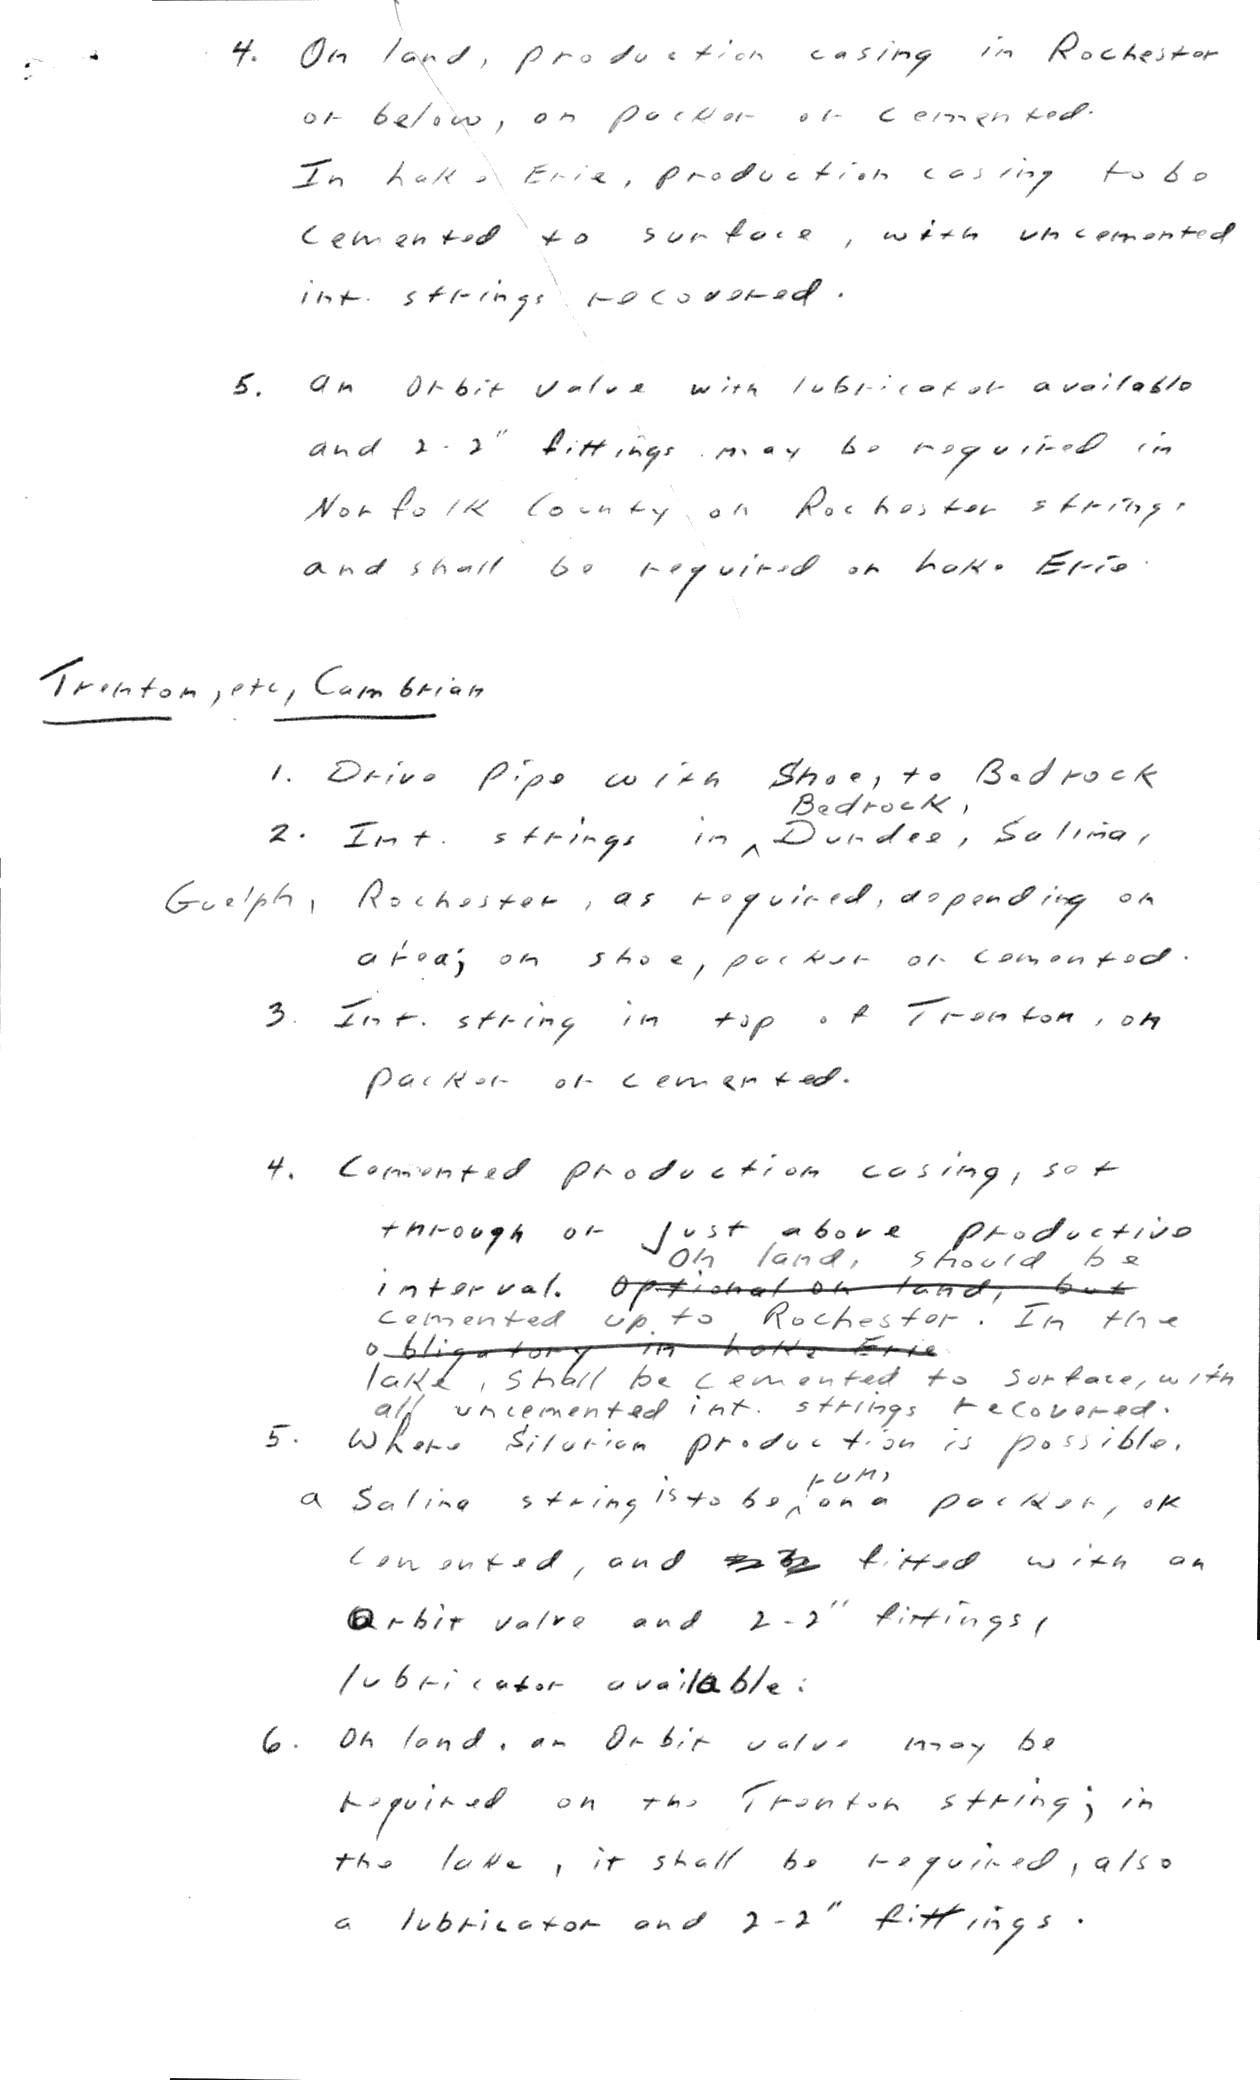 4. On land, production casing in Rochester
or below, on packer or cemented.
In Lake Erie, production casing to be
cemented to surface, with uncemented
int. strings recovered.
5. An Orbit valve with lubricator available
and 2-2" fittings may be required in
Norfolk County on Rochester strings
and shall be required on Lake Erie.
Trenton, etc, Cambrian
1. Drive Pipe with Shoe, to Bedrock
Bedrock,
2. Int. strings in ^ Dundee, Salina,
Guelph, Rochester, as required, depending on
area; on shoe, packer or cemented.
3. Int. string in top of Trenton, on
packer or cemented.
4. Cemented production casing, set
through or just above productive
On land, should be
interval. Optional on land, but
cemented up to Rochester. In the
obligatory in Lake Erie
lake, shall be cemented to surface, with
all uncemented int. strings recovered.
5. Where Silurian production is possible,
run,
a Salina string is to be ^ on a packer, or
cemented, and fitted with an
Orbit valve and 2-2" fittings,
lubricator available.
6. On land, an Orbit valve may be
required on the Trenton string; in
the lake, it shall be required, also
a lubricator and 2-2" fittings.